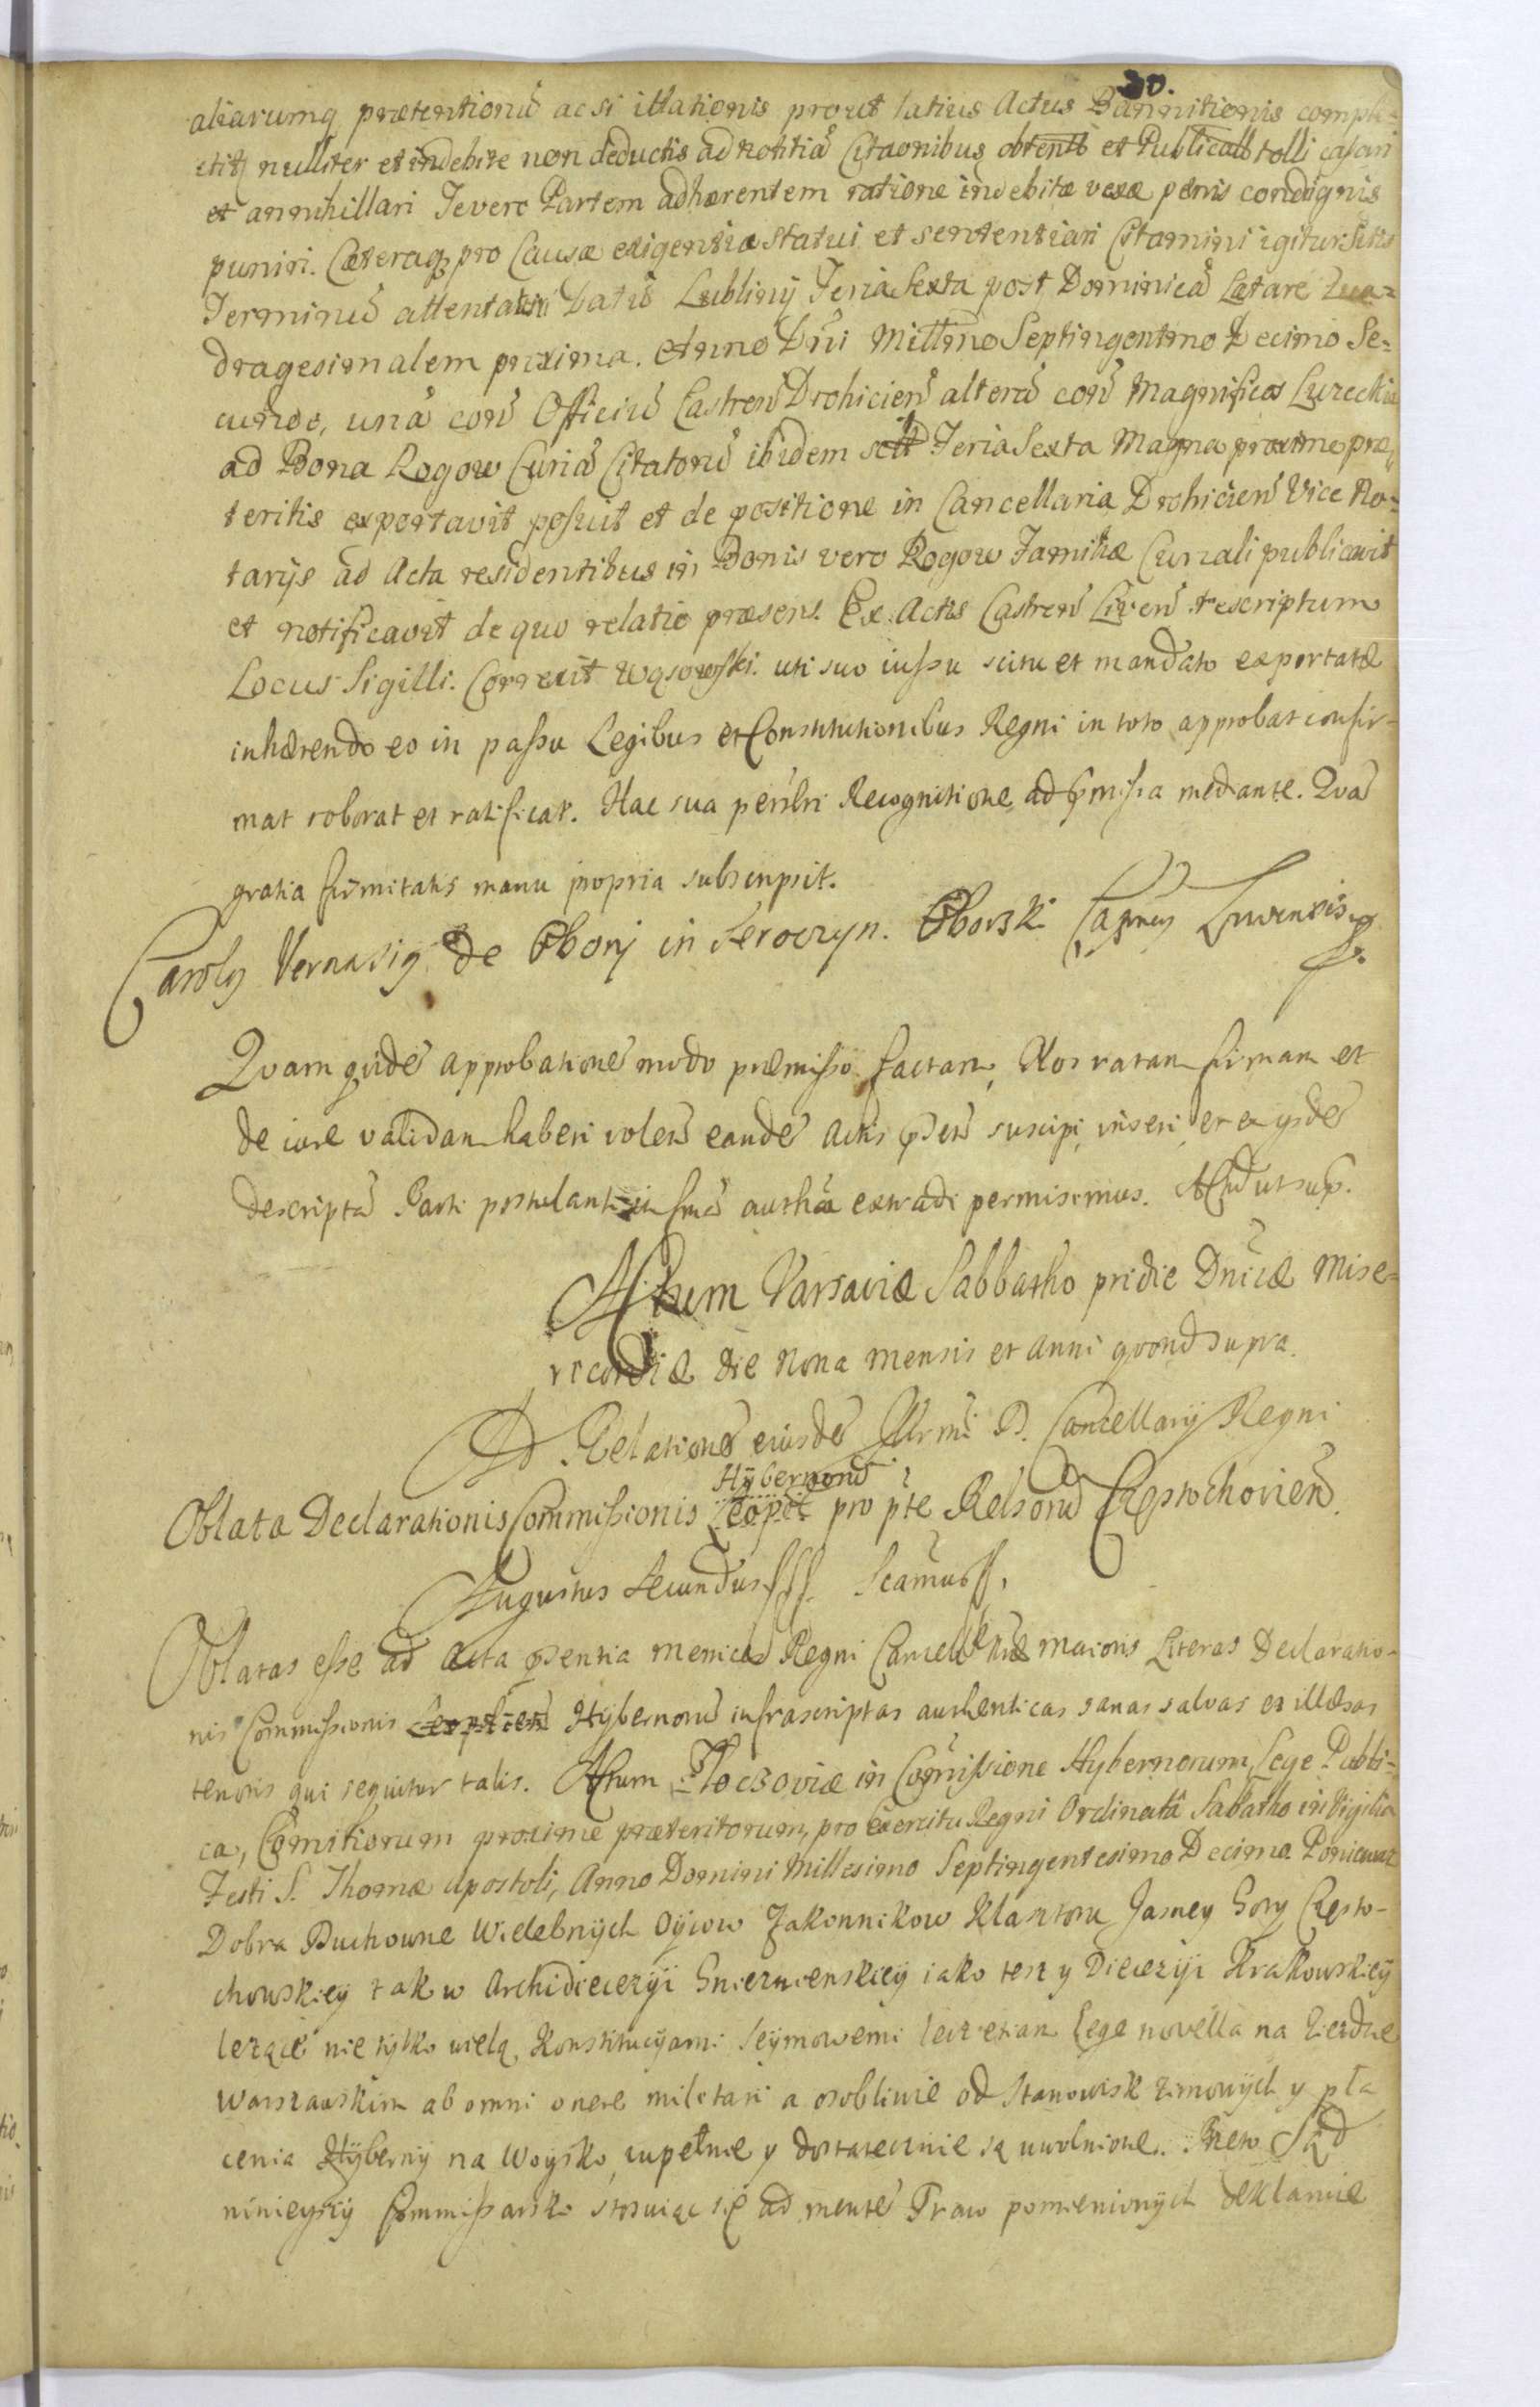 30.
aliarumq prætentionũ ac si illationis prout latius Actus Bannitionis comple-
ctitq nulliter et indebite non deductis ad notitiã Citaonibus obtent et Publicatt tolli cassari
et annihillari Te vero Partem adhærentem ratione indebitæ vexæ pænis condignis
puniri. Cæteraq pro Causæ exigentia statui et sententiari Citamini igitur sitis
Terminũ attentaturi Datũ Lublinij Feria Sexta post Dominicã Lætare Qua-
dragesimalem proxima. Anno Dni Millmo Septingentmo Decimo Se-
cundo, unã con Officiũ Castren Drohicien alterã con Magnificos Kurczki
ad Bona Rogow Curiã Citatorũ ibidem sitã Feria Sexta Magna proxime præ-
teritis exportavit posuit et de positione in Cancellaria Drohicien Vice No-
tarijs ad Acta residentibus in Bonis vero Rogow Familiæ Curiali publicavit
et notificavit de quo relatio præsens. Ex Actis Castren Liven rescriptum
Locus Sigilli. Correxit Wąsowski. uti suo iussu scitu et mandato exportatæ
inhærendo eo in passu Legibus et Constitutionibus Regni in toto approbat confir-
mat roborat et ratificat. Hac sua persbri Recognitione ad pmissa mediante. Qua
gratia firmitatis manu propria subscripsit.
Carolq de Obory in Seroczyn. Oborski
Quam quidẽ approbationẽ modo præmisso factam, Nos ratam firmam et
de iure validam haberi volen eandẽ Actis psen suscipi inseri et ex ysdẽ
descriptã Parti postulanti in formã authcã extradi permisimus. Actũ ut sup.
Actum Varsaviæ Sabbatho pridie Dnicæ Mise-
ricordiæ die Nona Mensis et Anni quond supra.
Ad Relationẽ eiusdẽ Illrmi D. Cancellarij Regni
Hÿbernorũ
Oblata Declarationis Commissionis Leopol pro pte Relsorũ Czestochovien.
Augustus Secundus fff. Scamus ff.
Oblatas esse ad Acta psentia Metricæ Regni Cancellariæ maioris Literas Declaratio-
nis Commissionis Hÿbernorũ infrascriptas authenticas sanas salvas et illæsas
tenoris qui sequitur talis. Actum in Commissione Hybernorum Lege Publi-
ca, Comitiorum proxime præteritorum, pro Exercitu Regni Ordinatâ Sabatho in Vigilia
Festi S. Thomæ Apostoli, Anno Domini Millesimo Septingentesimo Decimo. Poniewaz
Dobra Duchowne Wielebnÿch Oÿcow Zakonnikow Klasztoru Jasney Gory Czesto-
chowskieÿ tak w Archidieciezÿi Gnieznienskieÿ iako tesz y Diecezÿi Krakowskieÿ
lezące nie tÿlko wielą Konstitucÿami Seÿmowemi lecz etiam Lege novella na Ziezdzie
Warszawskim ab omni onere militari a osobliwie od stanowisk zimowÿch y pła
cenia Hÿbernÿ na Woÿsko, zupełnie y dostatecznie są uwolnione. Przeto Sąd
ninieÿszÿ Commissarski stosuiąc się ad mentẽ Praw pomienionÿch deklaruie